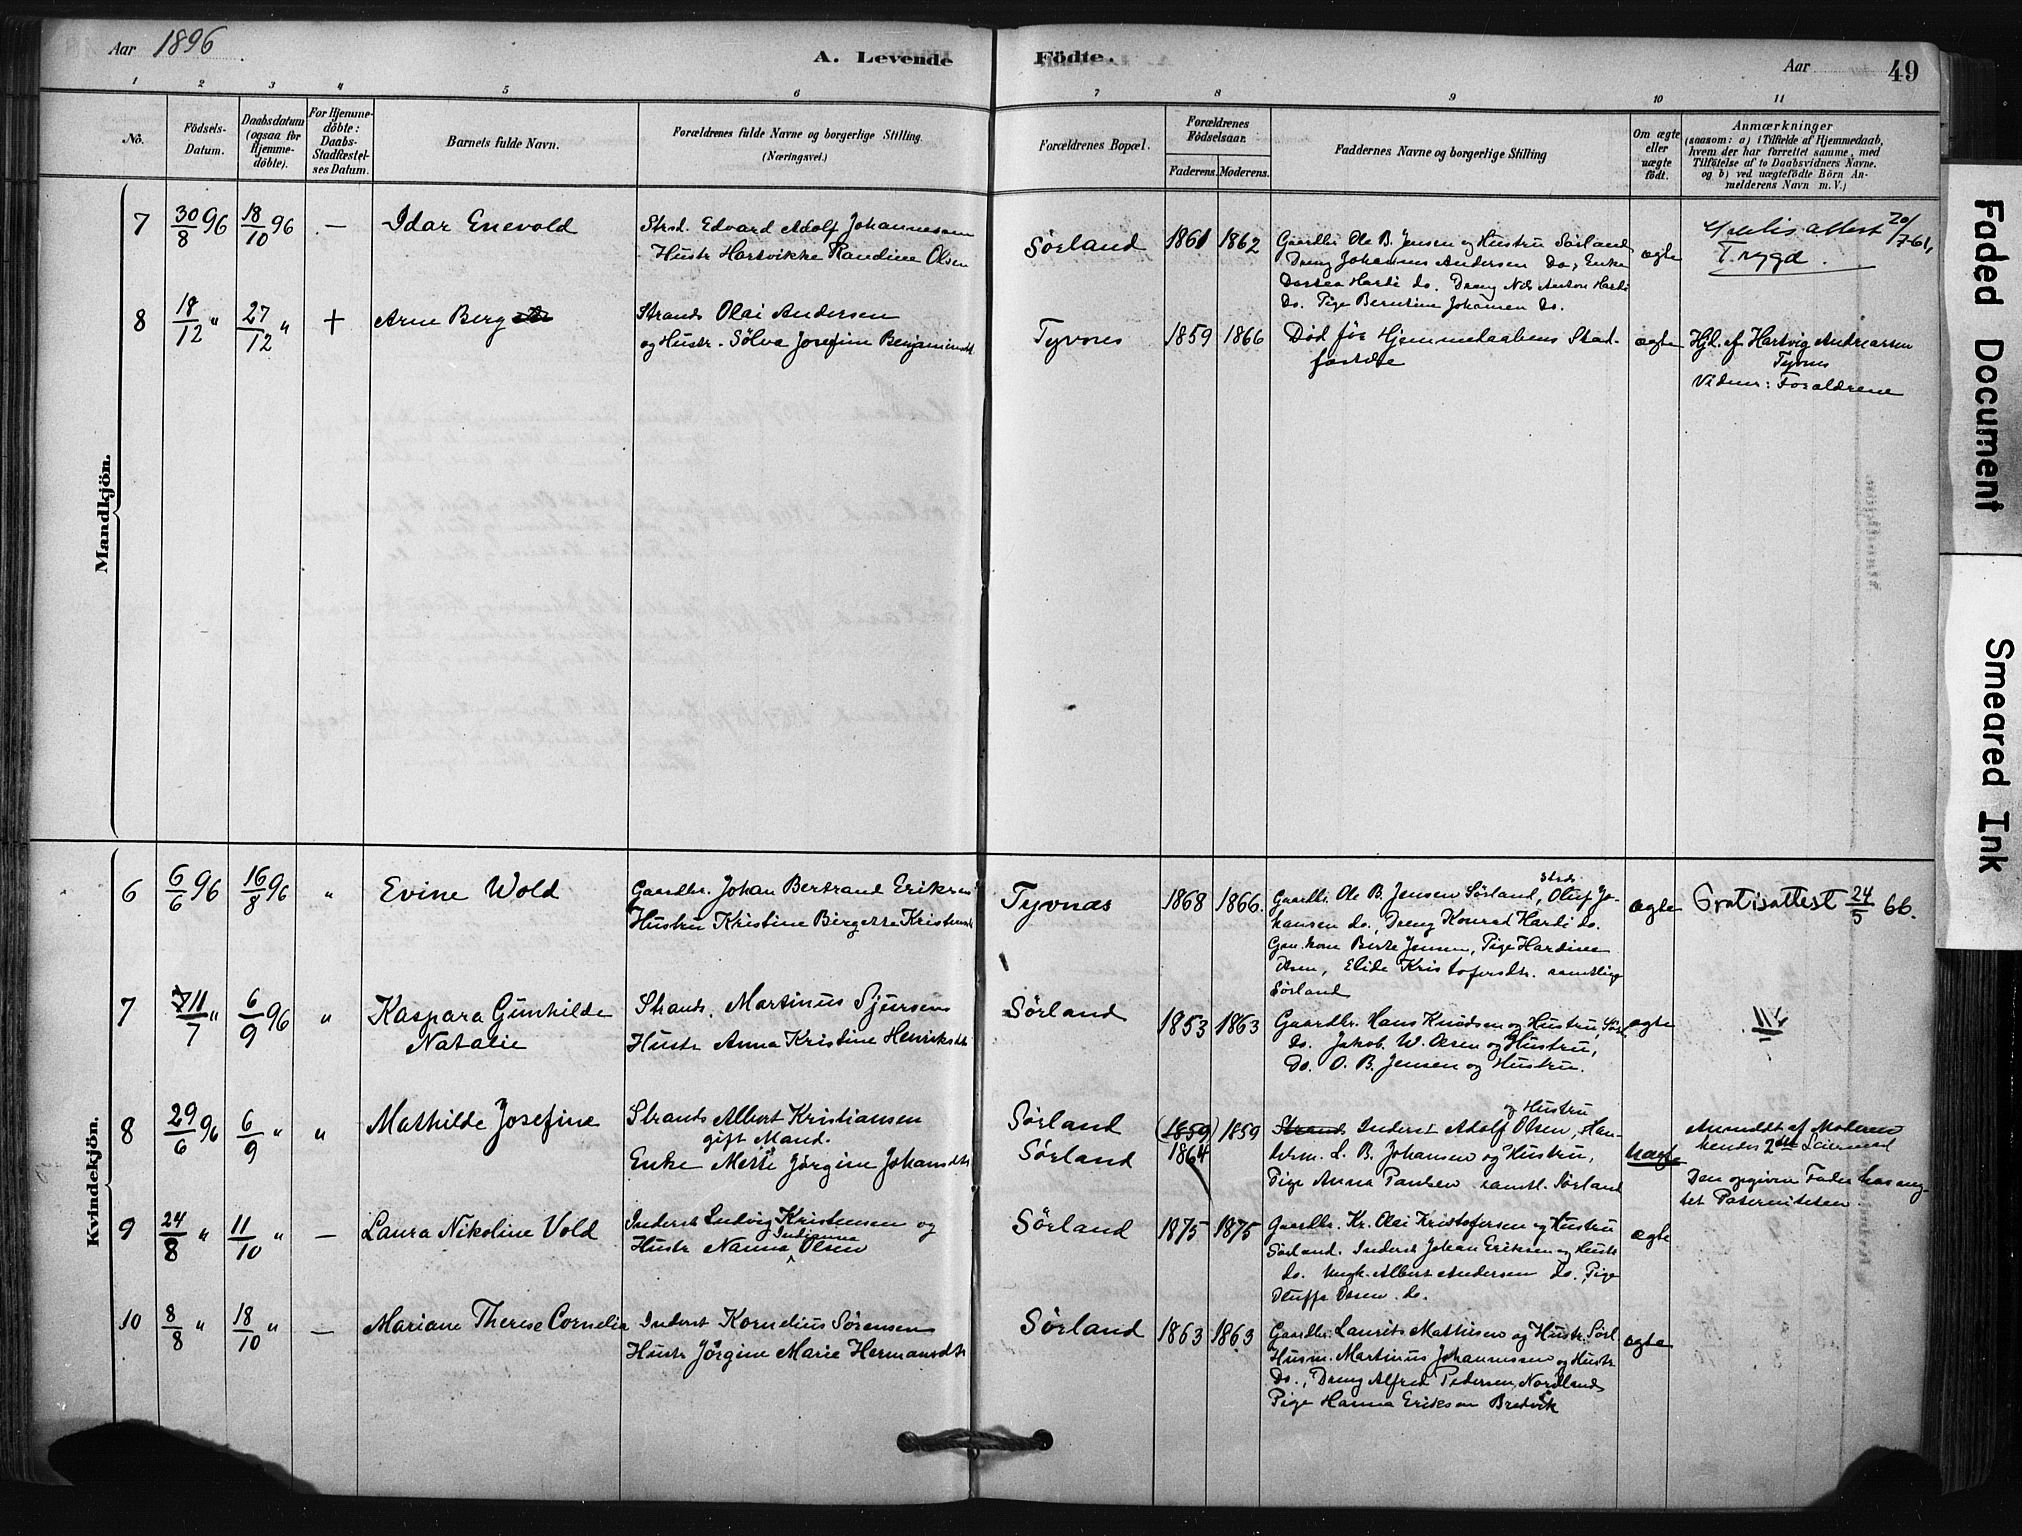 Aar 1896
A. Levende Födte.
Aar
49
1 2 3 4 5 6 7 8 9 10 11
No.
Födsels-
Datum.
Daabsdatum
(ogsaa for
Hjemme-
döbte).
For Hjemme-
döbte:
Daabs-
Stadfæstel-
ses Datum.
Barnets fulde Navn.
Forældrenes fulde Navne og borgerlige Stilling
(Næringsvei.)
Forældrenes Bopæl.
Forældrenes
Födselsaar.
Faderens. Moderens.
Faddernes Navne og borgerlige Stilling
Om ægte
eller
uægte
födt.
Anmærkninger
(saasom: a) i Tilfælde af Hjemmedaab,
hvem der har forrettet samme, med
Tilföielse af to Daabsvidners Navne,
og b) ved uægtefödte Börn An-
melderens Navn m. V.)
Mandkjön.
7 30/8 96 18/10 96 — Idar Enevold
Strd. Edvard Adolf Johannesen
Hustr Hartvikke Randine Olsen
Sørland 1861 1862
Gaardbr Ole B. Jensen og Hustru Sørland
Dreng Johannes Andersen Do, Enke
Dortea Hardi do. Dreng Nils Anton Hardi
Do. Pige Berntine Johansen Do.
ægte
attest 20/7-61,
Trygd.
8 18/12 " 27/12 " + Arne Berg
Strands Olai Andersen
og Hustr. Sølva Josefine Benjaminsdt
Tyvnes 1859 1866
Død før Hjemmedaabens Stad-
fæstelse
ægte
Hjd. af Hartvig Andreassen
Tyvnes
Vidner: Forældrene
Kvindekjön.
6 6/6 96 16/8 96 " Evine Wold
Gaardbr. Johan Bertrand Eriksen
Hustru Kristine Birgette Kristensdt
Tyvnæs 1868 1866.
Strds.
Gaardbr. Ole B. Jensen Sørland, Oluf Jo-
hansen do., Dreng Konrad Hardi do.
Gm. kone Berte Jensen, Pige Hardine
Olsen, Elide Kristofersdtr. samtlige
Sørland
ægte
Gratisattest 24/5 66.
7 11/7 " 6/9 96 " Kaspara Gunhilde
Natalie
Strands. Martinus Sjursen
Hustr Anna Kristine Henriksdtr
Sørland 1853 1863
Gaardbr. Hans Knudsen og Hustru, Sørl
Do. Jakob W. Olsen og Hustru,
Do. O. B. Jensen og Hustru.
ægte
8 29/6 96 6/9 " " Mathilde Josefine
Strands Albert Kristiansen
gift Mand.
Enke Mette Jørgine Johansdtr
Sørland (1859) 1859
Sørland 1864
og Hustru
Strands Inderst Adolf Olsen, Han-
delsm. L. B. Johansen og Hustru,
Pige Anna Paulsen samtl. Sørland
uægte
Anmeldt af Moderen
hendes 2det Leiermaal
Den opgivne Fader har ang-
tet Paterniteten.
9 24/8 " 11/10 " — Laura Nikoline Vold
Inderst Ludvig Kristensen og
Hustr Nanna Indianna Olsen
Sørland 1875 1875
Gaardbr. Kr. Olai Kristofersen og Hustru
Sørland. Inderst Johan Eriksen og Hustr
do. Ungk. Albert Andersen do., Pige
Oluffa Olsen do.
ægte
10 8/8 " 18/10 " — Mariane Therese Cornelia
Inderst Kornelius Sørensen
Hustr Jørgine Marie Hermansdtr
Sørland 1863 1863
Gaardbr. Laurits Mathisen og Hustr. Sørl
Husm. Martinus Johannessen og Hustr
Do., Dreng Alfred Pedersen, Nordland
Pige Hanna Eriksen Bredvik
ægte
Faded Document
Smeared Ink